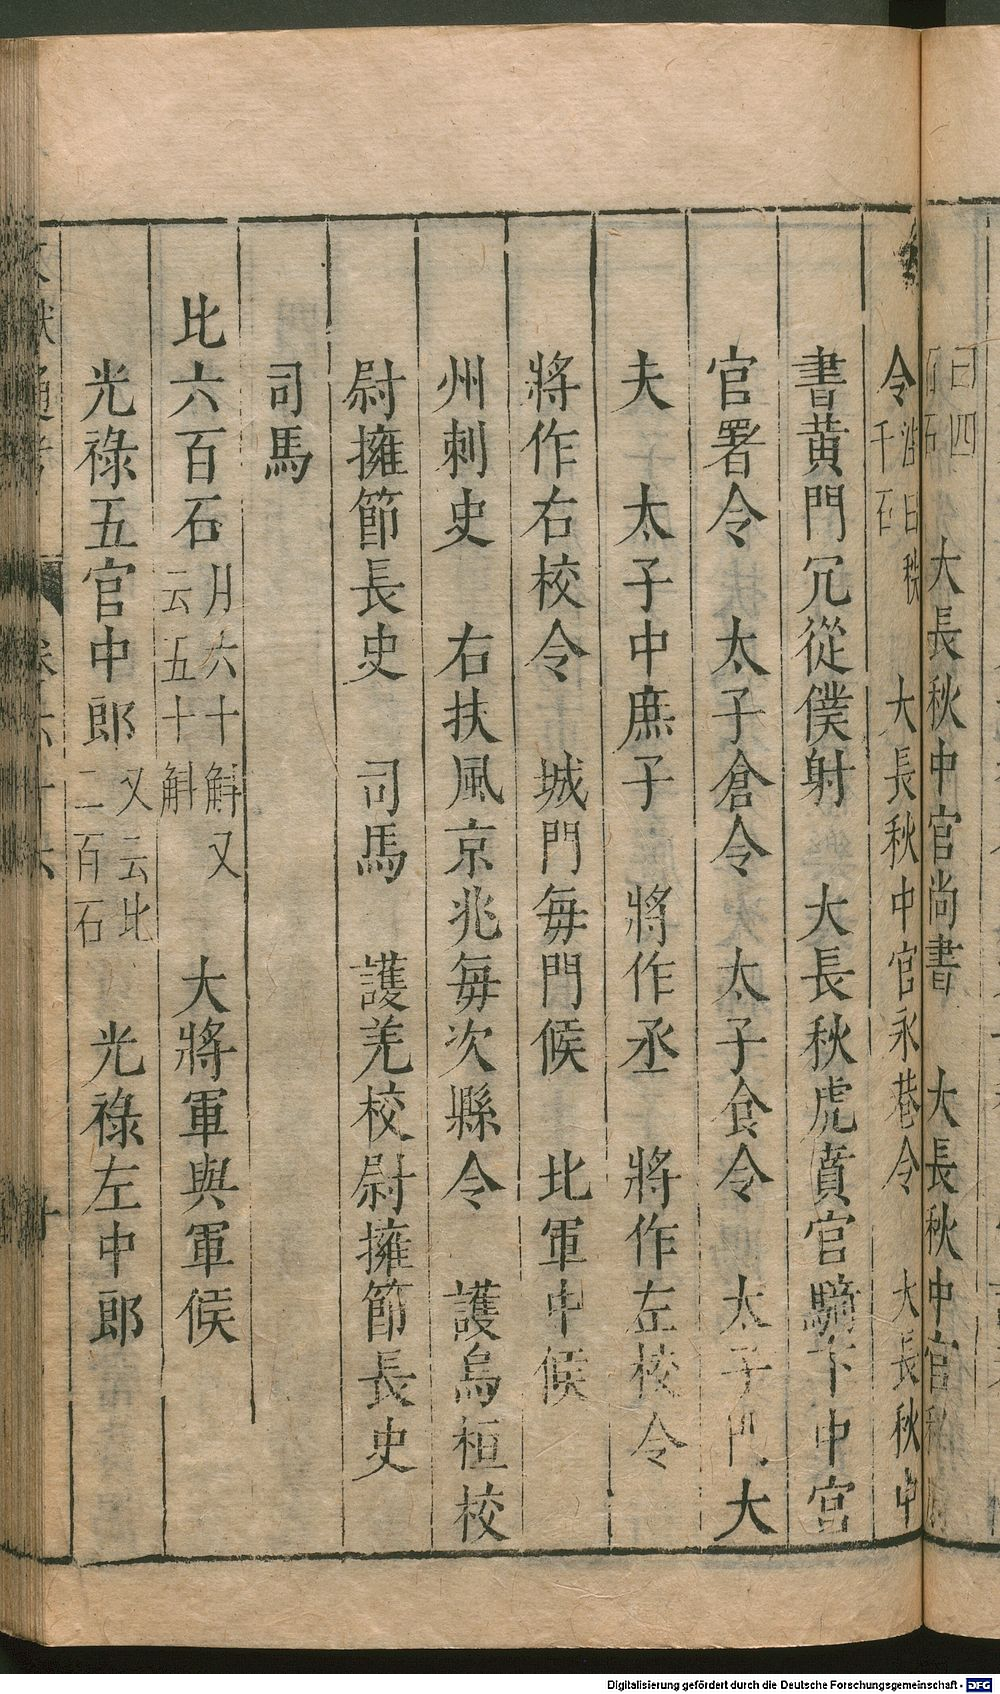 曰四
百石 大長秋中官尚書 大長秋中官
令 秩千石 大長秋中官永巷令 大長秋中
書黄門冗從僕射 大長秋虎賁官騎下中宮
官署令 太子倉令 太子食令 太子門大
夫 太子中庶子 將作丞 將作左校令
將作右校令 城門每門候 北軍中候
州刺史 右扶風京兆每次縣令 護烏桓校
尉擁節長史 司馬 護羌校尉擁節長史
司馬
比六百石 月六十斛又云五十斛 大將軍與軍候
光祿五官中郎 又云比二百石 光祿左中郎
通考
卷六十六
Digitalisierung gefördert durch die Deutsche Forschungsgemeinschaft - DFG